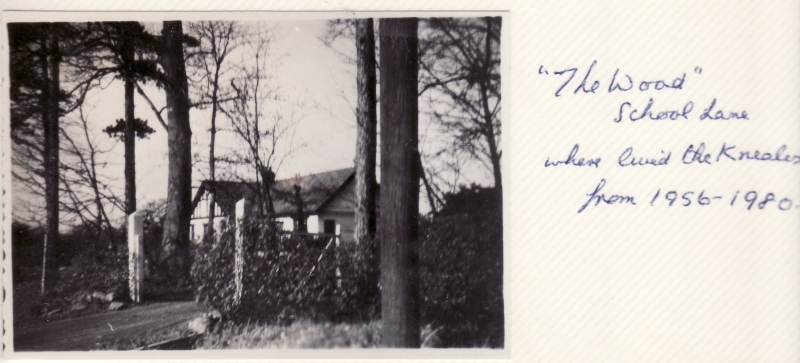 "The Wood"
School Lane
where lived the Kneales
from 1956-1980.